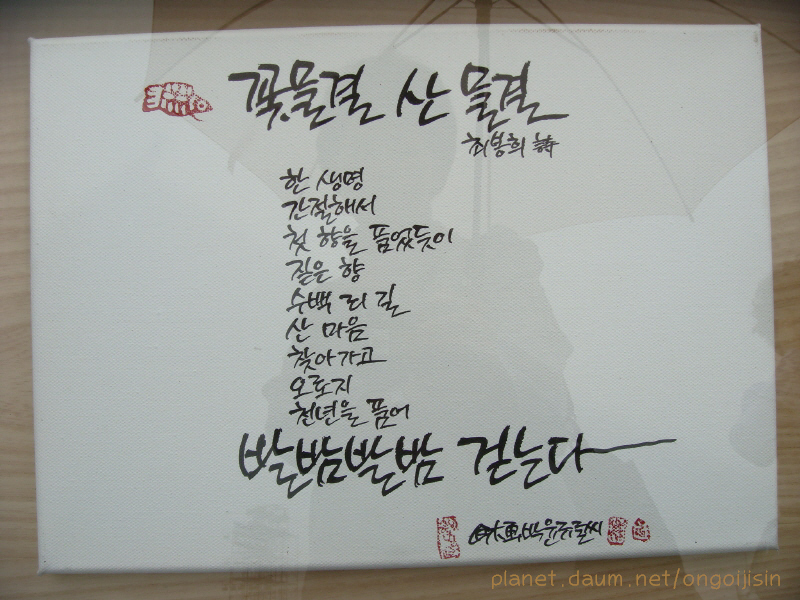 꽃물결 산 물결
최봉희 詩
한 생명
간절해서
첫 향을 품었듯이
짙은 향
수백 리 길
산 마음
찾아가고
오로지
천년을 품어
발밤발밤 걷는다
박윤규
planet.daum.net/ongoljisin